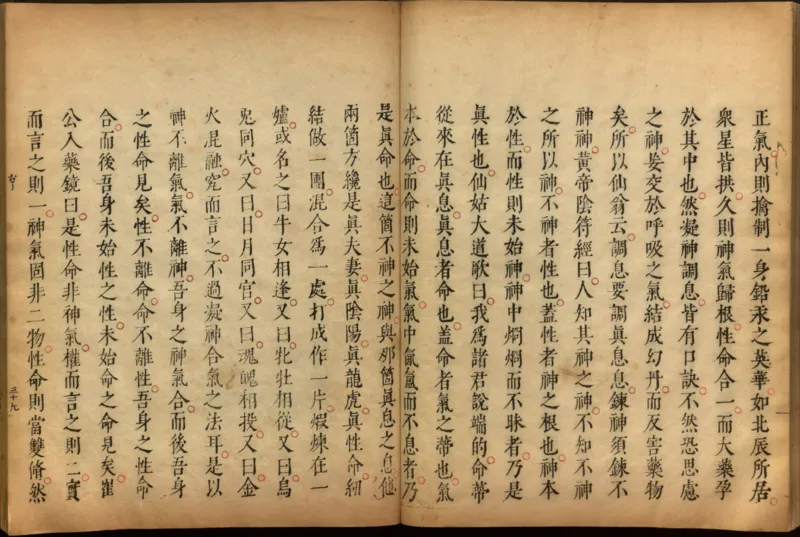 正氣內則擒制一身鉛汞之英華如北辰所居
衆星皆拱久則神氣歸根性命合一而大藥孕
於其中也然凝神調息皆有口訣不然恐思慮
之神妄交於呼吸之氣結成幻丹而反害藥物
矣所以仙翁云調息要調眞息息鍊神須鍊不
神神黃帝陰符經曰人知其神之神不知不神
之所以神不神者性也蓋性者神之根也神本
於性而性則未始神神中烱烱而不昧者乃是
眞性也仙姑大道歌曰我爲諸君說端的命蒂
從來在眞息眞息者命也蓋命者氣之蒂也氣
本於命而命則未始氣氣中氤氳而不息者乃
是眞命也這箇不神之神與那箇眞息之息他
兩箇方纔是眞夫妻眞陰陽眞龍虎眞性命紐
結做一團混合爲一處打成作一片煅煉在一
爐或名之曰牛女相逢又曰牝牡相從又曰烏
兎同穴又曰日月同宮又曰魂魄相投又曰金
火混融究而言之不過凝神合氣之法耳是以
神不離氣氣不離神吾身之神氣合而後吾身
之性命見矣性不離命命不離性吾身之性命
合而後吾身未始性之性未始命之命見矣崔
公入藥鏡曰是性命非神氣權而言之則二實
而言之則一神氣固非二物性命則當雙脩然
三十九